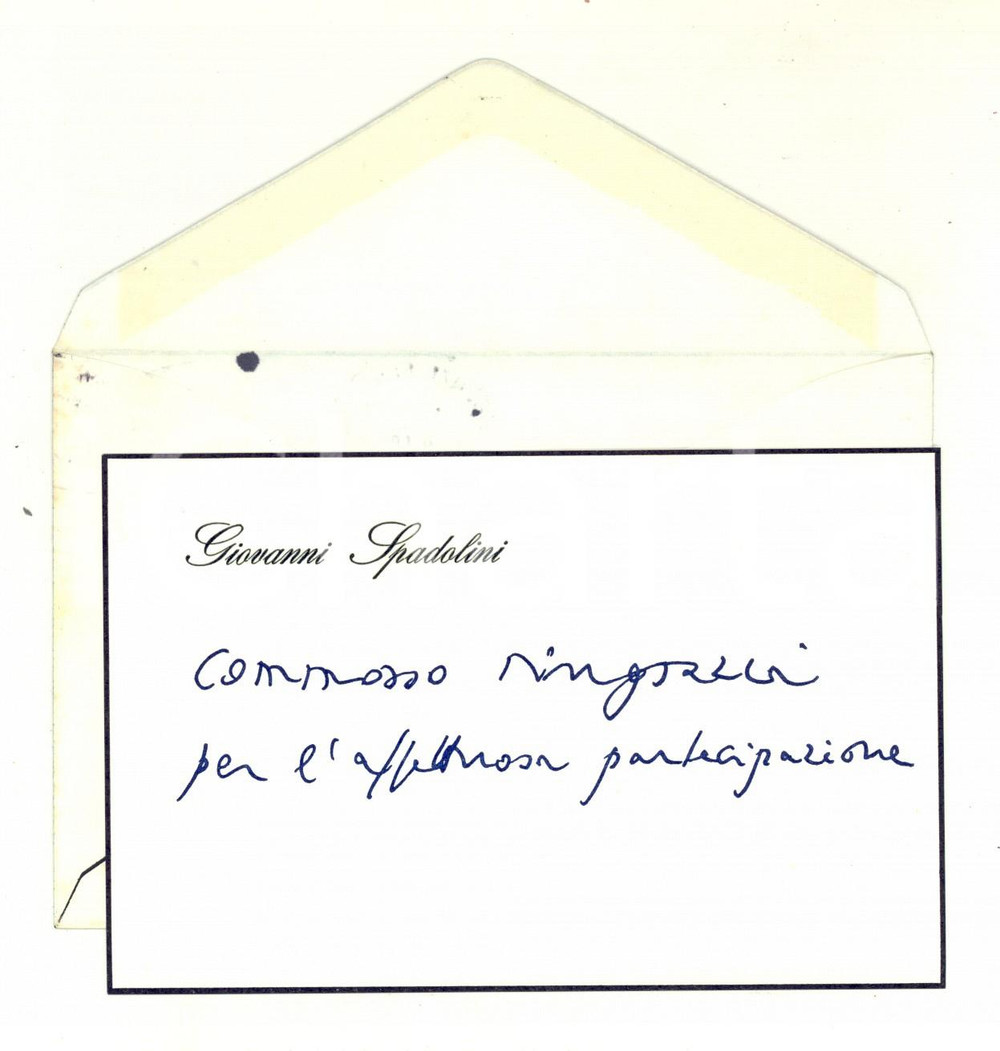 Giovanni Spadolini
commosso ringrazia
per l'affettuosa partecipazione